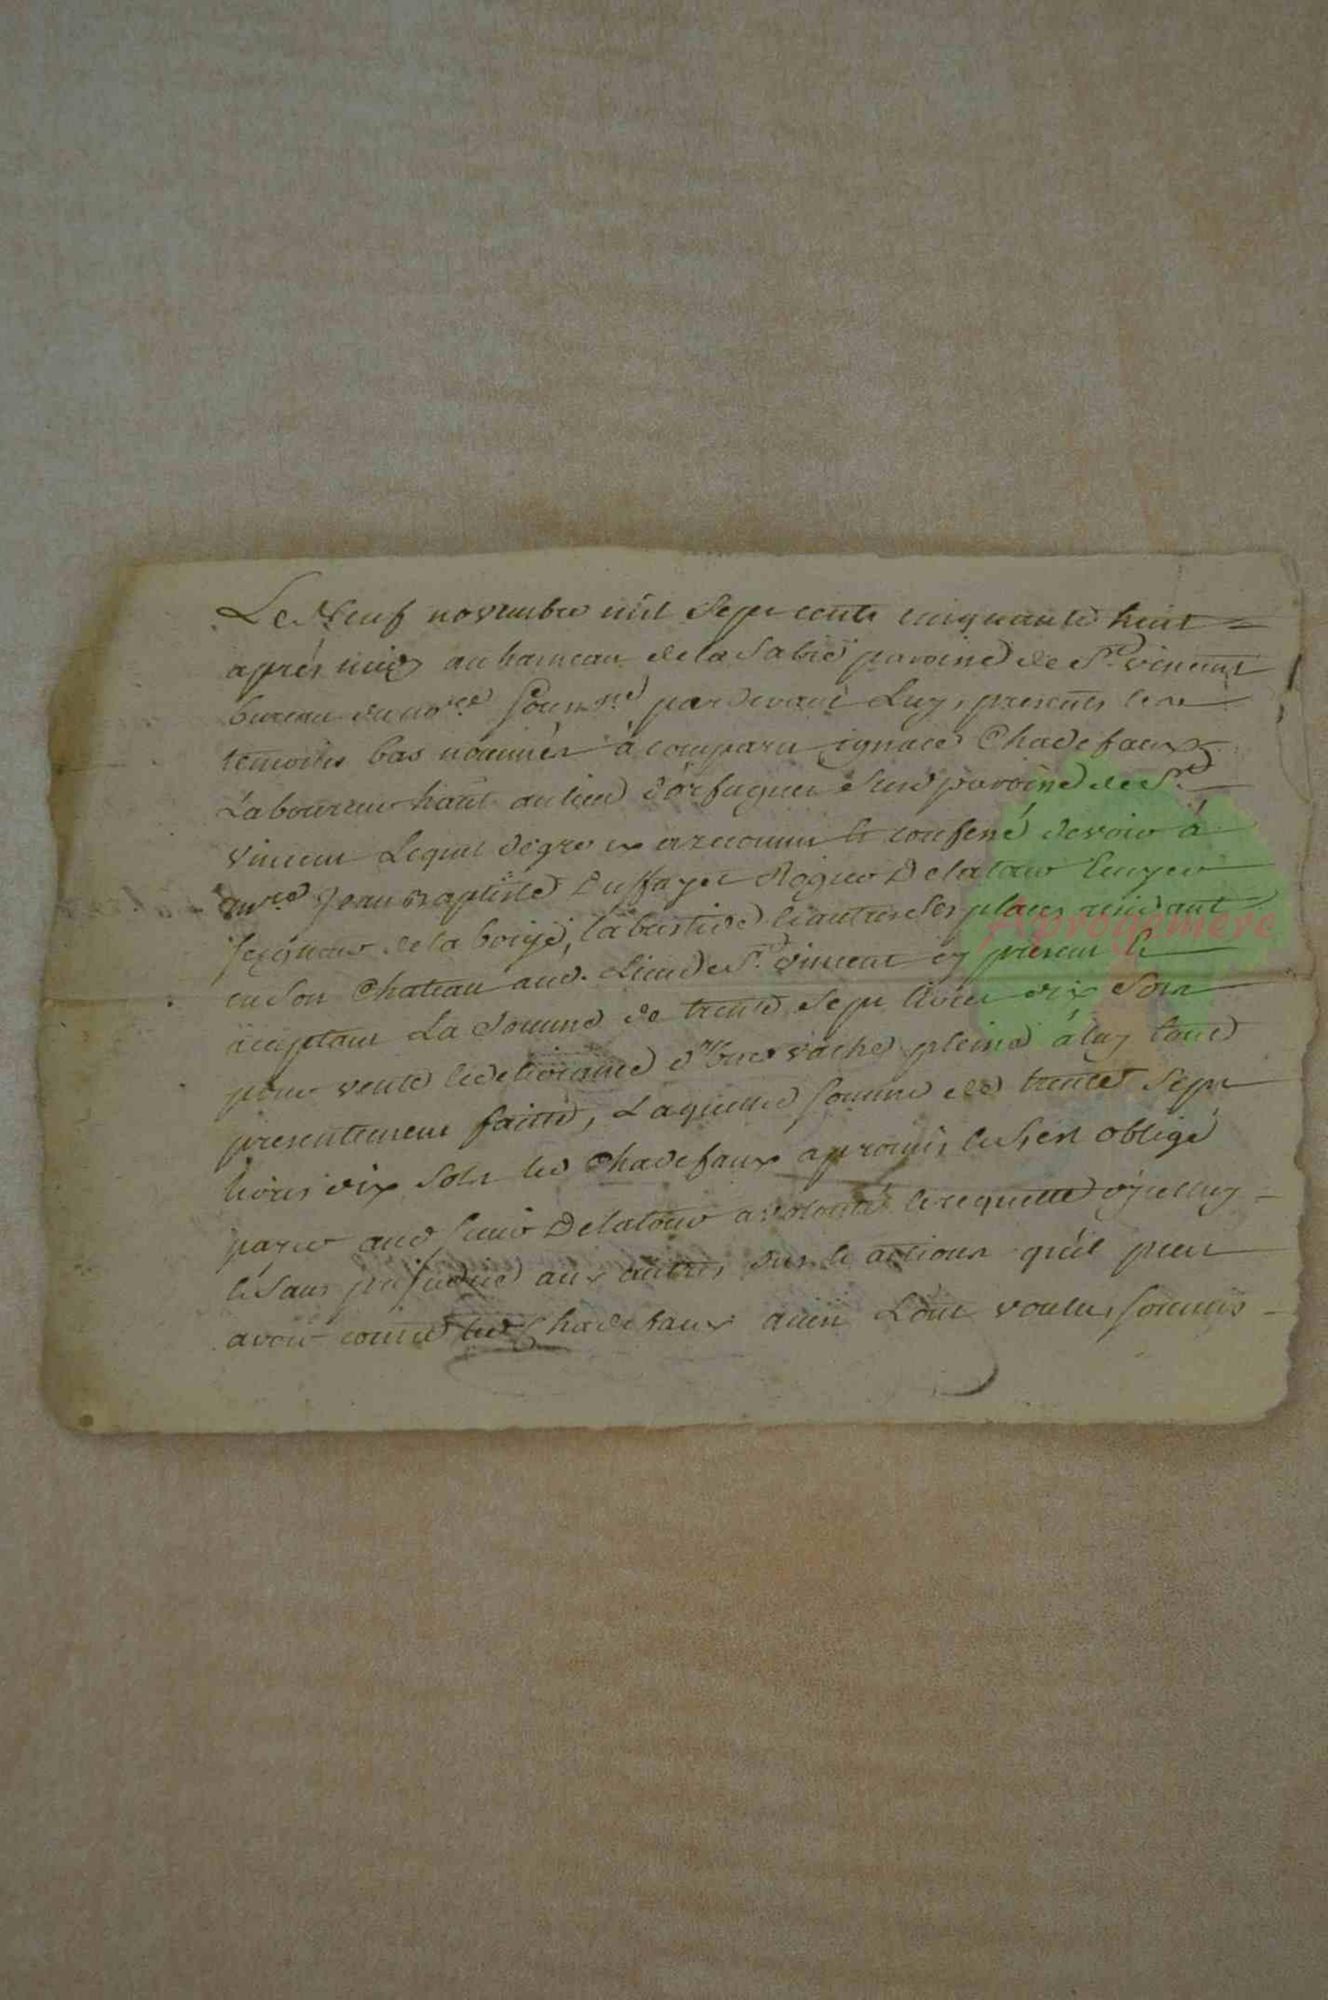 Le Neuf novembre mil Sept cents cinquante huit =
apres midy au hameau de la Sabie paroisse de St. vincent
bureau du nore. Sousne. pardevant Luy, presents les
temoins bas nommés à comparu ignace Chadefaux
Laboureur hant. au lieu susd paroisse de St.
Vincent Lequel degré a reconnu & confessé devoir à
Jean Baptiste Duffayet Rogier Delatour Ecuyer
seigneur de la borije, la bastide & autres ses places residant
Aprogemere
en son Chateau aud. Lieu de St. vincent cy present &
aceptant La Somme de trente sept livres dix Sols
pour vente & delivrance d'une vache pleine à luy tout
presentement faitte, Laquelle somme de trente sept
livres dix Sols led Chadefaux a promis & s'est obligé
payer aud sieur Delatour a volonté & requette d'jcelluy =
& sans prejudice aux autres & actions qu'il peut
avoir contre led Chadefaux ainsi L'ont voulu, soumis -